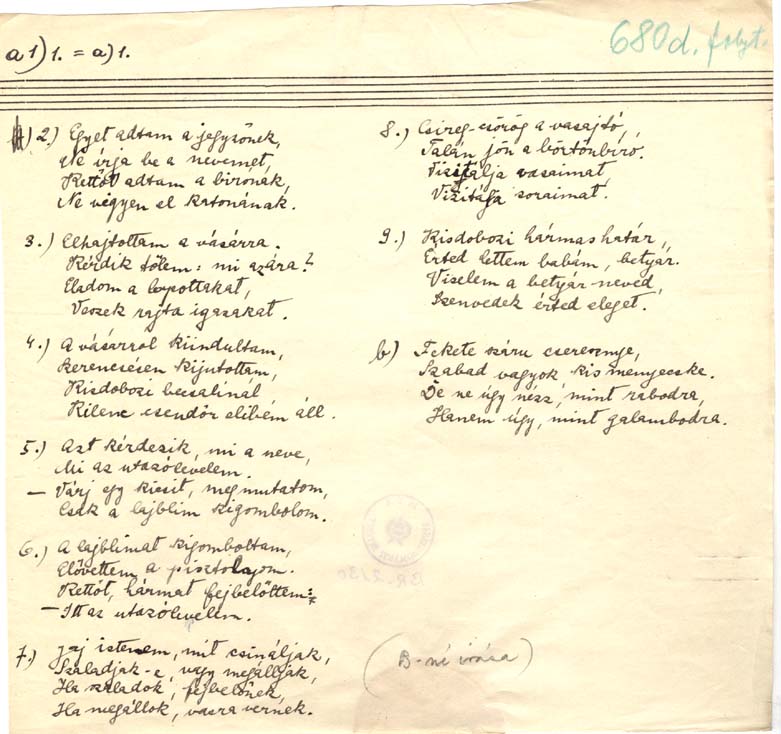 680d. folyt.
a1) 1. = a) 1.
2.) Egyet adtam a jegyzőnek,
Ne irja be a nevemet,
Kettőt adtam a birónák,
Ne végyen el katonának.
3.) Elhajtottam a vásárra.
Kérdik tőlem: mi azára?
Eladom a lopottakat,
Veszek rajta igazakat.
4.) A vásárról kiindultam,
Szerencsésen kijutottam,
Kisdobozi becsalinál
Kilenc csendőr elibém áll.
5.) Azt kérdezik, mi a neve,
Mi az utazólevelem.
– Várj egy kicsit, megmutatom,
Csak a lajblim kigombolom.
6.) A lajblimat kigomboltam,
Elővettem a pisztolyom.
Kettőt, hármat fejbelőttem:
– Itt az utazólevelem.
7.) Jaj istenem, mit csináljak,
Szaladjak-e, vagy megálljak,
Ha szaladok, fejbelőnek,
Ha megállok, vasra vernek.
8.) Csireg-csörög a vasajtó,
Talán jön a börtönbiró.
Vizitálja vasaimat,
Vizitálja soraimat.
9.) Kisdobozi hármas határ,
Érted lettem babám, betyár.
Viselem a betyár neved,
Szenvedek érted eleget.
b) Fekete száru cseresznye,
Szabad vagyok kis menyecske.
De ne úgy nézz, mint rabodra,
Hanem úgy, mint galambodra.
BR-2/30
(B-né irása)